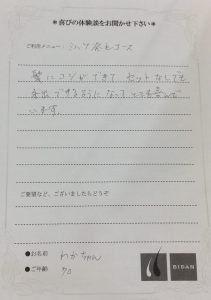 ＊喜びの体験談をお聞かせ下さい＊
ご利用メニュー：シルク発毛コース
髪にコシができて セットなしでも
外出できるようになって とても喜んで
います。
ご要望など、ございましたらどうぞ
●お名前 わかちゃん
●ご年齢 70
BISAN